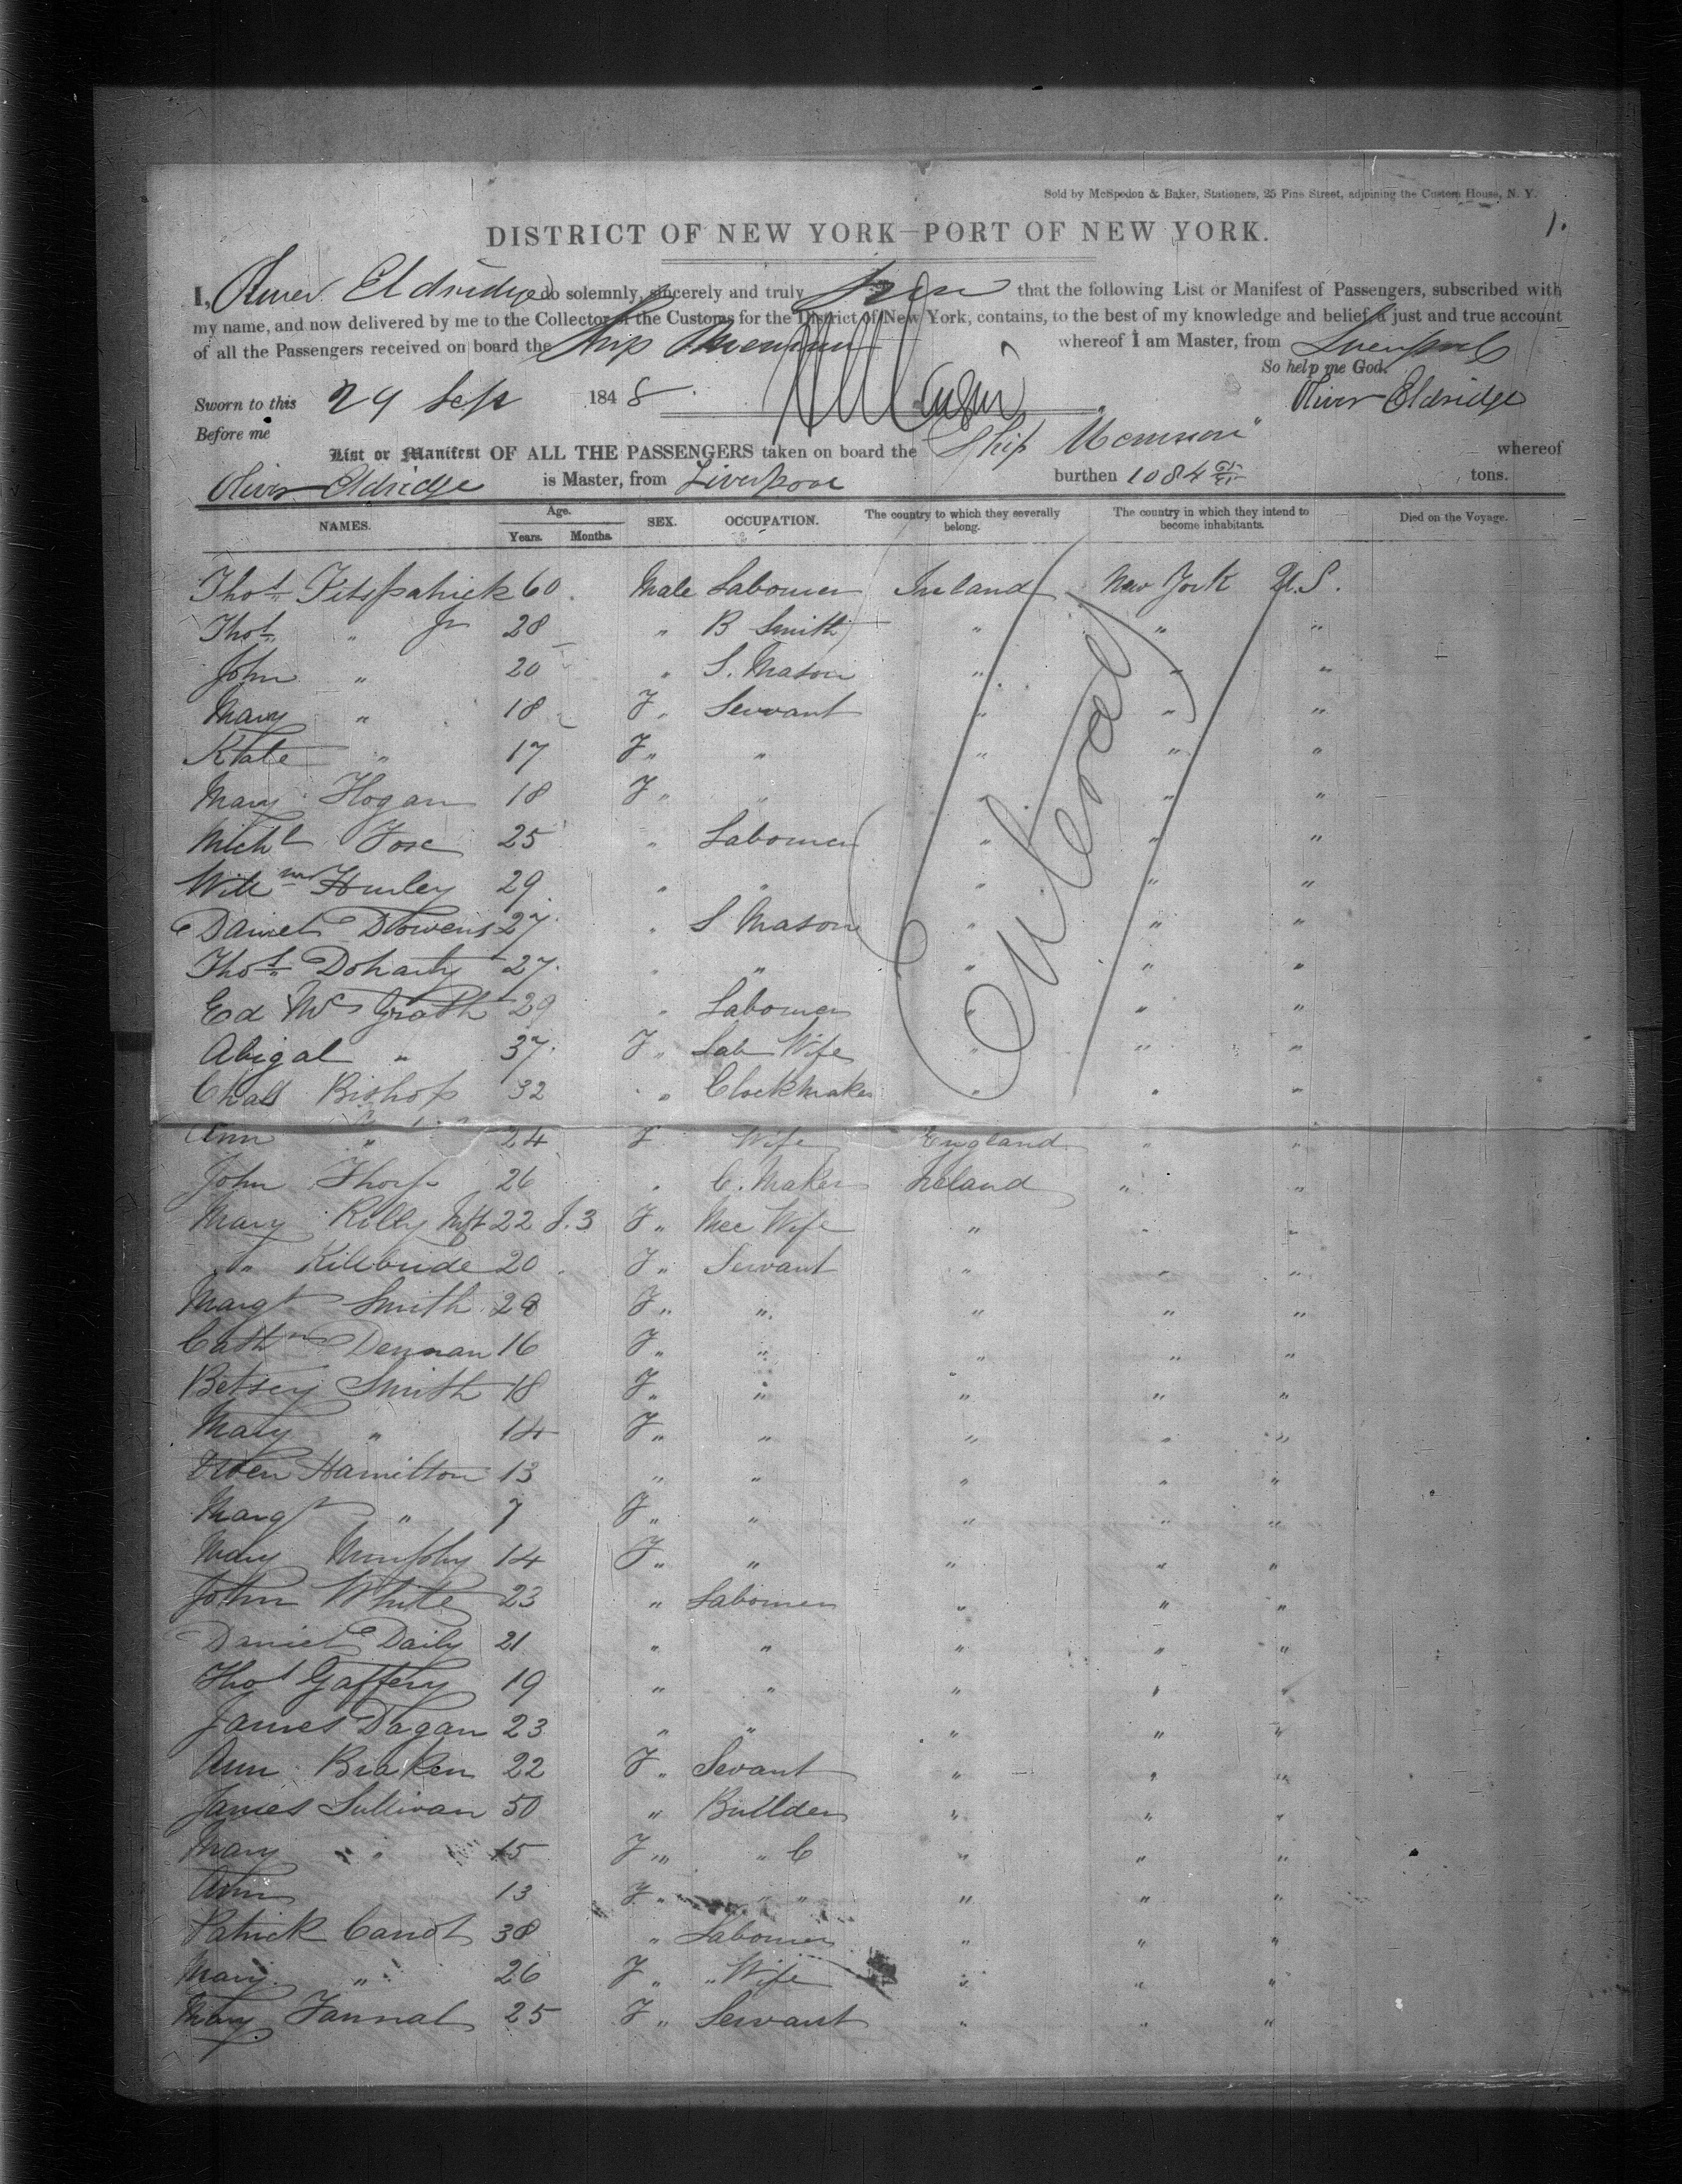 Sold by McSpedon & Baker, Stationers, 25 Pine Street, adjoining the Custom House, N. Y.
1.
DISTRICT OF NEW YORK—PORT OF NEW YORK.
I, Oliver Eldridge do solemnly, sincerely and truly swear that the following List or Manifest of Passengers, subscribed with
my name, and now delivered by me to the Collector of the Customs for the District of New York, contains, to the best of my knowledge and belief, a just and true account
of all the Passengers received on board the Ship Memnon whereof I am Master, from Liverpool
So help me God.
Sworn to this 29 Sept 1848 Oliver Eldridge
Before me
List or Manifest OF ALL THE PASSENGERS taken on board the Ship Memnon whereof
Oliver Eldridge is Master, from Liverpool burthen 1084 tons.
NAMES. Age. Years. Months. SEX. OCCUPATION. The country to which they severally belong. The country in which they intend to become inhabitants. Died on the Voyage.
Entered
Thos Fitspatrick 60 Male Labourer Ireland New York U.S.
Thos " Jr 28 " B Smith " " "
John " 20 " S. Mason " " "
Mary " 18 F " Servant " " "
Kate " 17 F " " " " "
Mary Hogan 18 F " " " " "
Michl 25 " Labourer " " "
Willm Hurley 29 " " " " "
Daniel 27 " S Mason " " "
Thos Doharty 27 " " " " "
Ed McGrath 29 " Labourer " " "
Abigal " 37 F " Lab Wife " " "
Chas Bishop 32 " Clockmaker " " "
Ann " 24 F Wife England " "
John Thorp 26 " C. Maker Ireland " "
Mary Rilly Inft 22 3 F " Mec Wife " " "
" Killbride 20 F " Servant " " "
Margt Smith 28 F " " " " "
Cathn Dennan 16 F " " " " "
Betsey Smith 18 F " " " " "
Mary " 14 F " " " " "
Owen Hamilton 13 " " " " "
Margt " 7 F " " " " "
Mary Murphy 14 F " " " " "
John White 23 " Labourer " " "
Daniel Daily 21 " " " " "
Thos Gaffery 19 " " " " "
James Dagan 23 " " " " "
Ann Braken 22 F " Sevant " " "
James Sullivan 50 " Builder " " "
Mary " 15 F " " C " " "
Ann 13 F " " " " " "
Patrick 38 " Labourer " " "
Mary " 26 F " " Wife " " "
Mary Fannal 25 F " Servant " " "